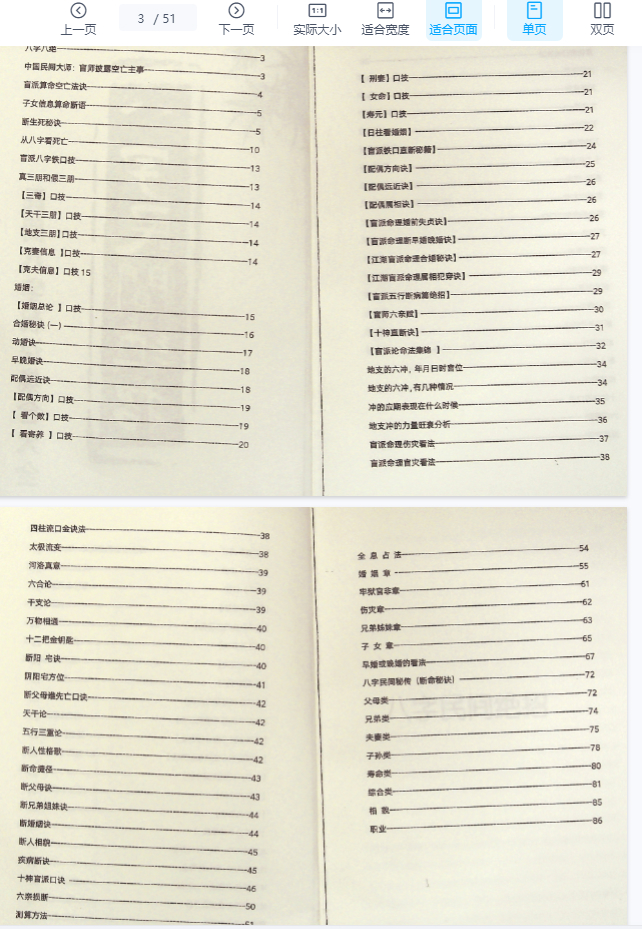 上一页
3 / 51
下一页
1:1
实际大小
适合宽度
适合页面
单页
双页
八字八绝 3
中国民间大师：盲师披露空亡主事 3
盲派算命空亡法诀 4
子女信息算命断语 5
断生死秘诀 5
从八字看死亡 10
盲派八字铁口技 13
真三朋和假三朋 13
【三奇】口技 14
【天干三朋】口技 14
【地支三朋】口技 14
【克妻信息 】口技 14
【克夫信息】口技 15
婚姻:
【婚姻总论 】口技 15
合婚秘诀(一) 16
动婚诀 17
早晚婚诀 18
配偶远近诀 18
【配偶方向】口技 19
【 看个数】口技 19
【 看寄养 】口技 20
【 刑妻】口技 21
【 女命】口技 21
【寿元】口技 21
【日柱看婚姻】 22
【盲派铁口直断秘籍】 24
【配偶方向诀】 25
【配偶远近诀】 26
【配偶属相诀】 26
【盲派命理婚前失贞诀】 26
【盲派命理断早婚晚婚诀】 27
【江湖盲派命理合婚秘诀】 27
【江湖盲派命理属相犯穿诀】 29
【盲派五行断病篇绝招】 29
【盲师六亲赋】 30
【十神直断诀】 31
【盲派论命法集锦 】 32
地支的六冲，年月日时宫位 34
地支的六冲，有几种情况 34
冲的应期表现在什么时候 35
地支冲的力量旺衰分析 36
盲派命理伤灾看法 37
盲派命理官灾看法 38
四柱流口金诀法 38
太极流变 38
河洛真章 39
六合论 39
干支论 39
万物相通 40
十二把金钥匙 40
断阳 宅诀 40
阴阳宅方位 41
断父母谁先亡口诀 42
天干论 42
五行三重论 42
断人性格歌 42
断命捷径 43
断父母诀 43
断兄弟姐妹诀 44
断婚姻诀 44
断人相貌 45
疾病断诀 45
十神盲派口诀 46
六亲损断 50
测算方法 51
全 息 占 法 54
婚 姻 章 55
牢狱官非章 61
伤灾章 62
兄弟姊妹章 63
子 女 章 65
早婚或晚婚的看法 67
八字民间秘传（断命秘诀） 72
父母类 72
兄弟类 74
夫妻类 75
子孙类 78
寿命类 80
综合类 81
相 貌 85
职业 86